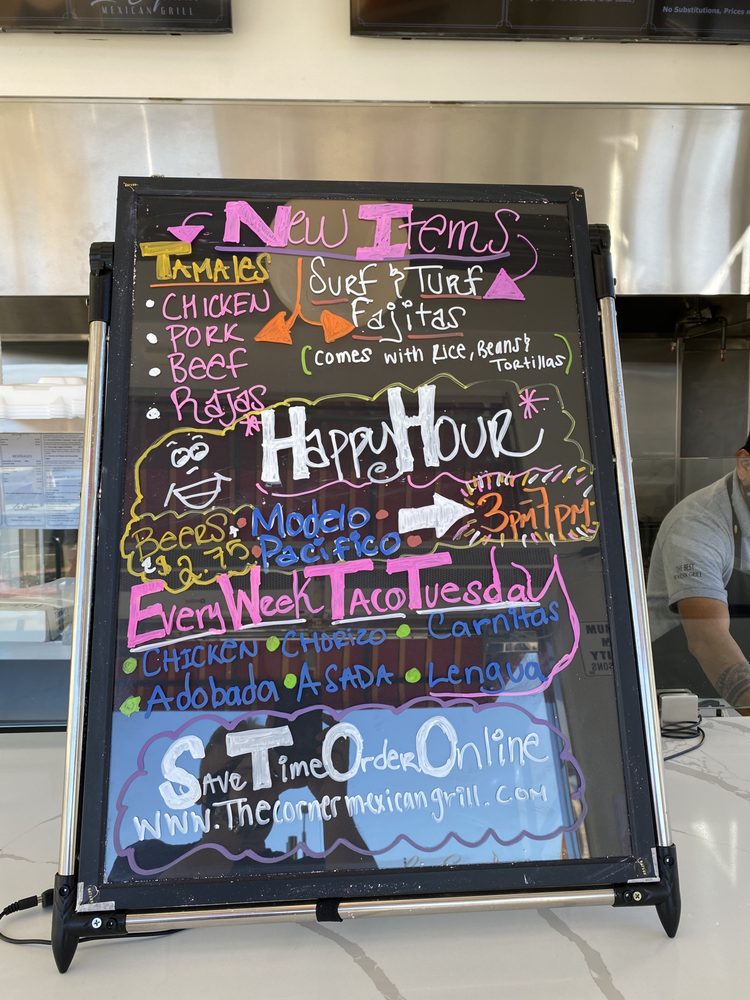 MEXICAN GRILL
No Substitutions, Prices
New Items
Tamales
• Chicken
• Pork
• Beef
• Rajas
Surf & Turf
Fajitas
(comes with Rice, Beans &
Tortillas)
*Happy Hour*
Beers • Modelo • 3pm 7pm
$2.75 • Pacifico •
Every Week Taco Tuesday
• Chicken • Chorizo • Carnitas
• Adobada • Asada • Lengua
Save Time Order Online
www.Thecornermexicangrill.com
THE BEST